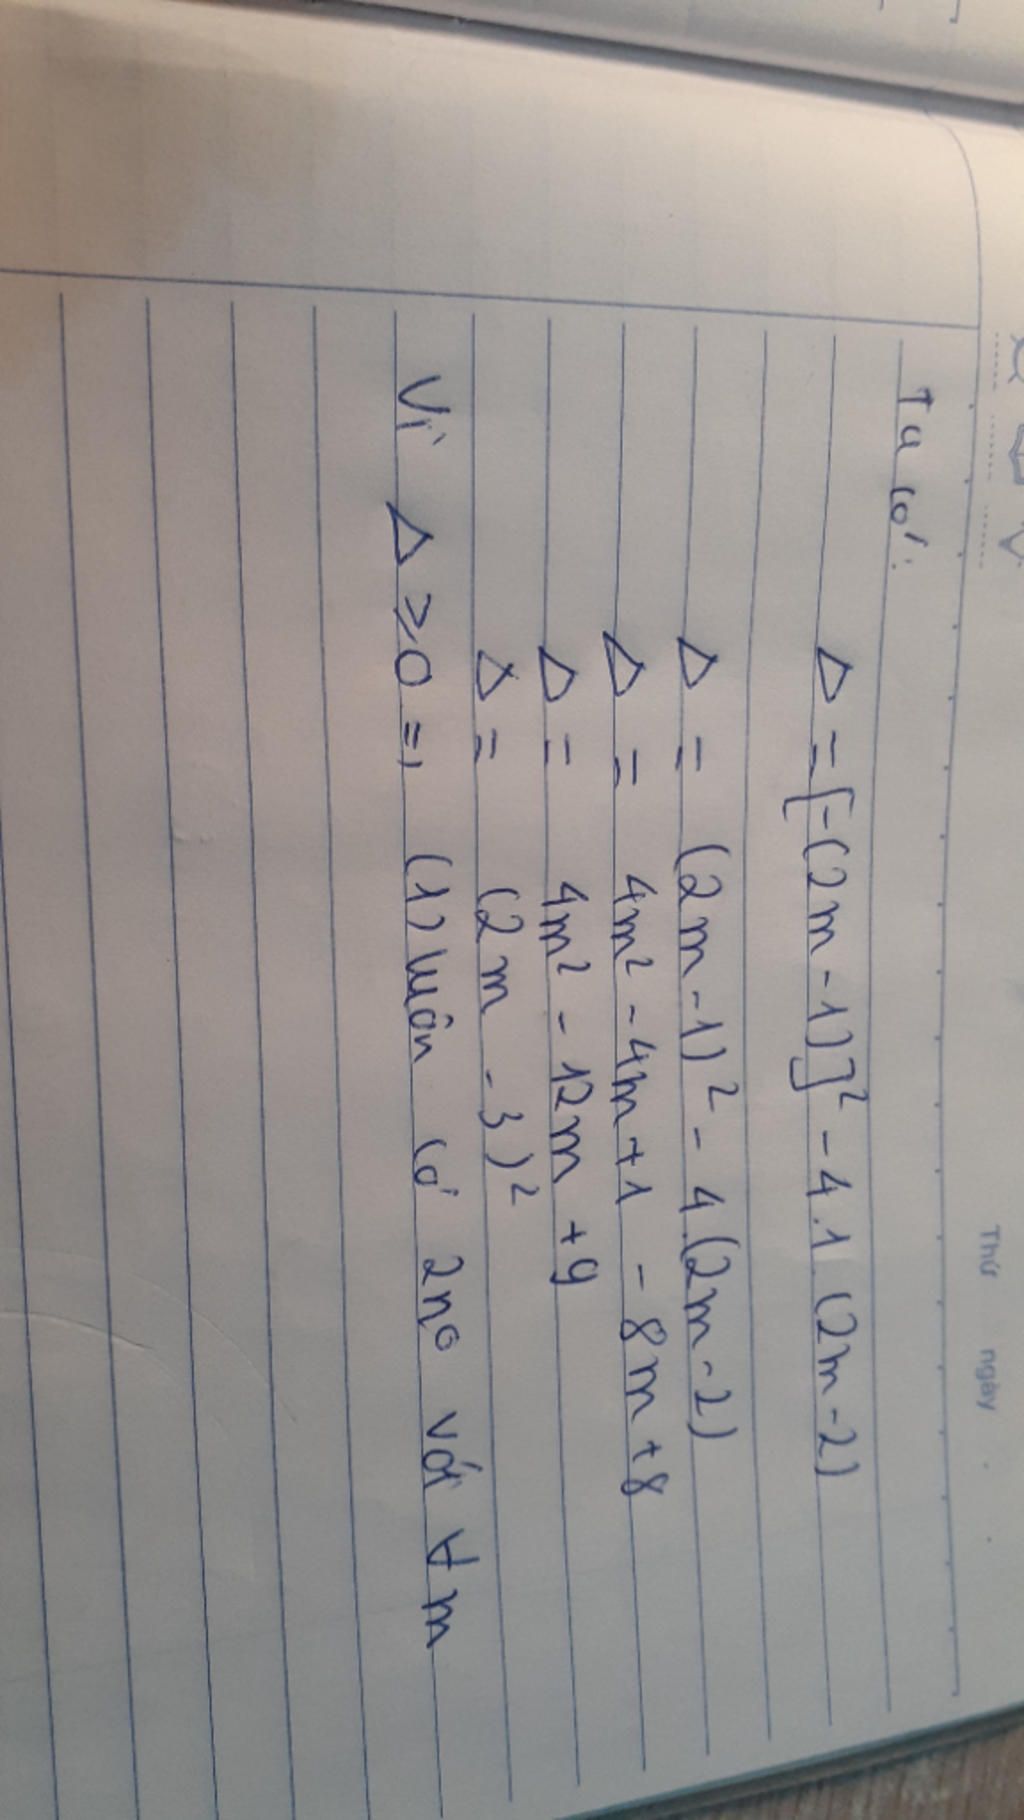 Thứ ngày
Ta có:
Δ = [-(2m-1)]² - 4.1.(2m-2)
Δ = (2m-1)² - 4.(2m-2)
Δ = 4m² - 4m+1 - 8m+8
Δ = 4m² - 12m +9
Δ = (2m - 3)²
Vì Δ ≥ 0 => (1) luôn có 2 no với ∀ m